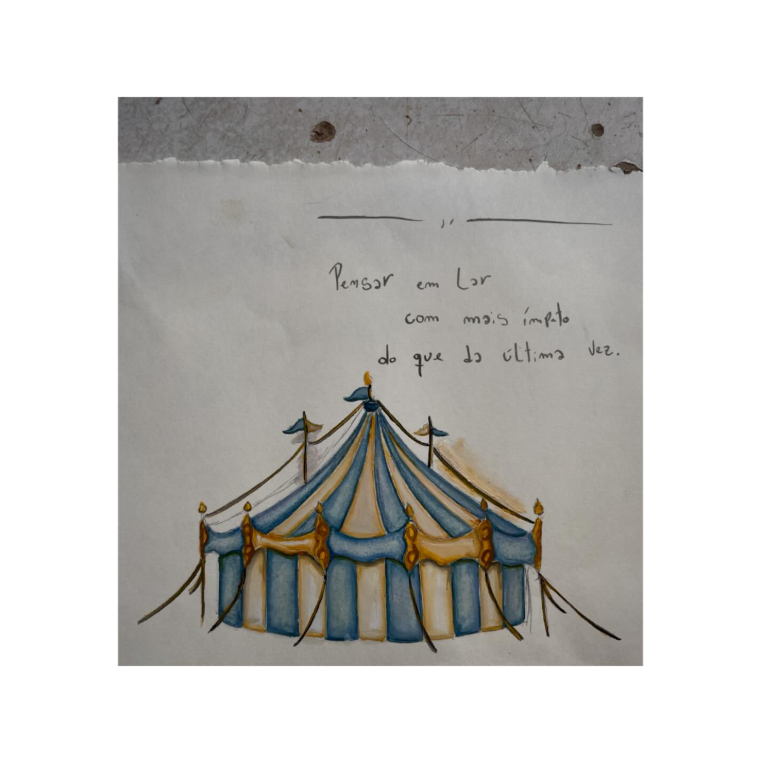 Pensar em Lar
com mais ímpeto
do que da última vez.